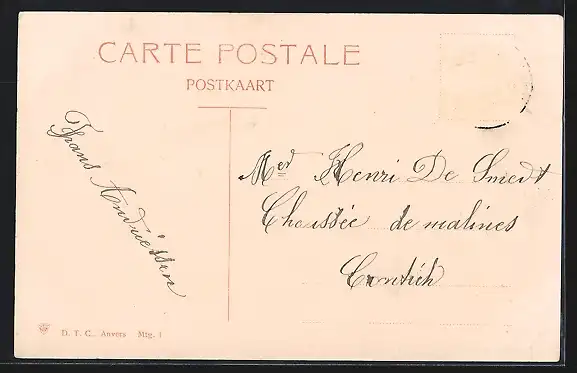 CARTE POSTALE
POSTKAART
Frans Andriessen
Mer Henri De Smedt
Chaussée de malines
Contich
D. T. C., Anvers Mtg. 1